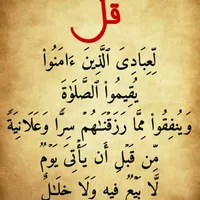 قل
لِّعِبَادِىَ ٱلَّذِينَ ءَامَنُوا۟
يُقِيمُوا۟ ٱلصَّلَوٰةَ
وَيُنفِقُوا۟ مِمَّا رَزَقْنَـٰهُمْ سِرًّا وَعَلَانِيَةً
مِّن قَبْلِ أَن يَأْتِىَ يَوْمٌ
لَّا بَيْعٌ فِيهِ وَلَا خِلَـٰلٌ